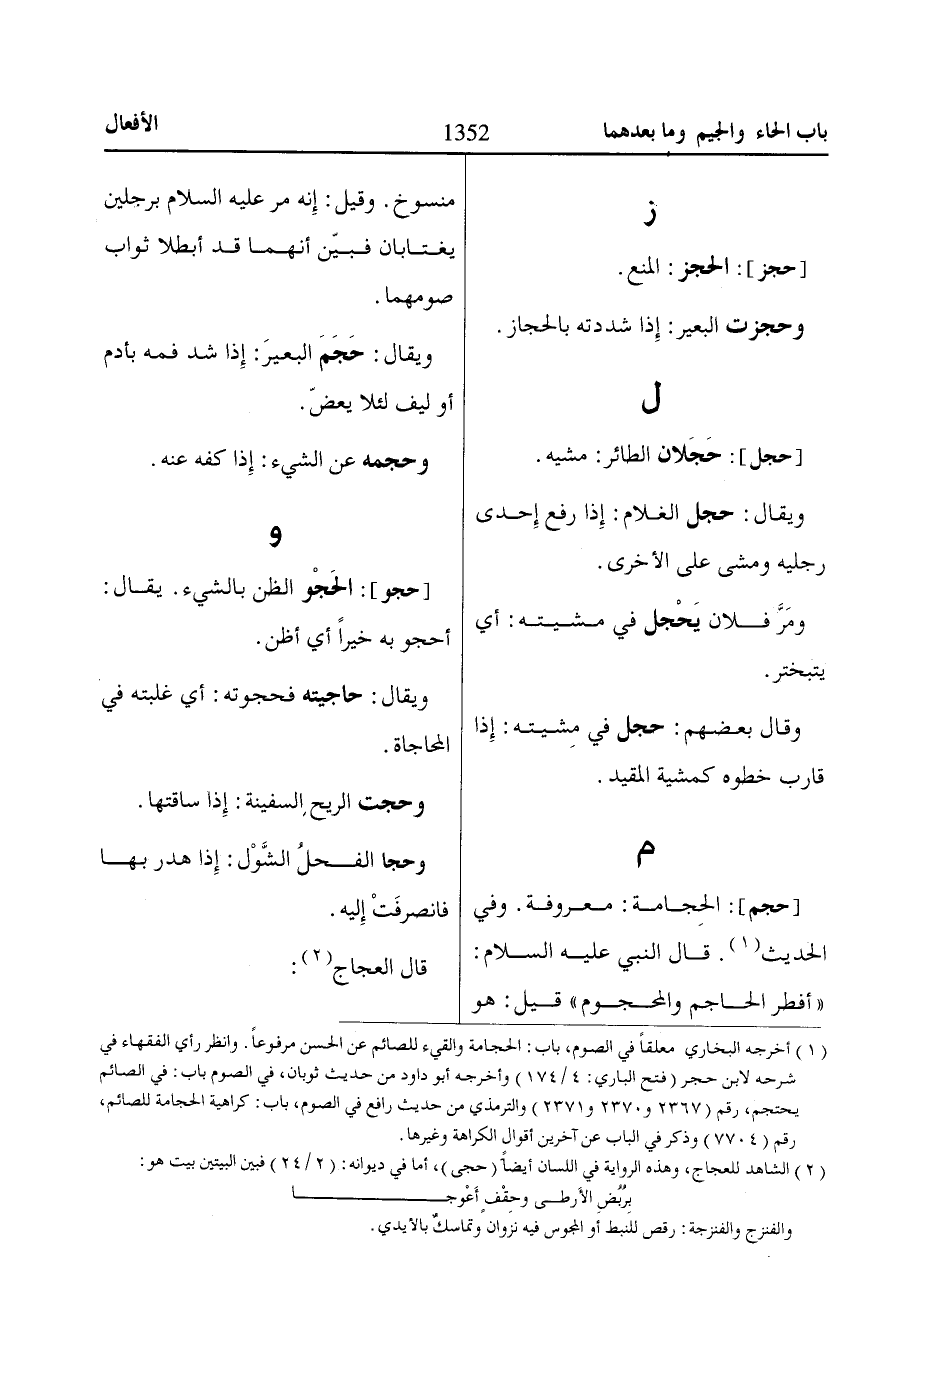 باب الحاء والجيم وما بعدهما
1352
الأفعال
ز
[حجز]: الحجز: المنع.
وحجزت البعير: إذا شددته بالحجاز.
ل
[حجل]: حَجَلان الطائر: مشيه.
ويقال: حجل الغلام: إذا رفع إحدى
رجليه ومشى على الأخرى.
ومَرَّ فلان يَحْجل في مشيته: أي
يتبختر.
وقال بعضهم: حجل في مِشيته: إذا
قارب خطوه كمشية المقيد.
م
[حجم]: الحِجامة: معروفة. وفي
الحديث(١). قال النبي عليه السلام:
«أفطر الحاجم والمحجوم» قيل: هو
منسوخ. وقيل: إنه مر عليه السلام برجلين
يغتابان فبيّن أنهما قد أبطلا ثواب
صومهما.
ويقال: حَجَمَ البعيرَ: إذا شد فمه بأدم
أو ليف لئلا يعضّ.
وحجمه عن الشيء: إذا كفه عنه.
و
[حجو]: الحَجْو الظن بالشيء. يقال:
أحجو به خيراً أي أظن.
ويقال: حاجيته فحجوته: أي غلبته في
المحاجاة.
وحجت الريح السفينة: إذا ساقتها.
وحجا الفحلُ الشَّوْل: إذا هدر بها
فانصرفَتْ إليه.
قال العجاج(٢):
(١) أخرجه البخاري معلقاً في الصوم، باب: الحجامة والقيء للصائم عن الحسن مرفوعاً. وانظر رأي الفقهاء في
شرحه لابن حجر (فتح الباري: ٤/١٧٤) وأخرجه أبو داود من حديث ثوبان، في الصوم باب: في الصائم
يحتجم، رقم (٢٣٦٧ و٢٣٧٠ و٢٣٧١) والترمذي من حديث رافع في الصوم، باب: كراهية الحجامة للصائم،
رقم (٧٧٠٤) وذكر في الباب عن آخرين أقوال الكراهة وغيرها.
(٢) الشاهد للعجاج، وهذه الرواية في اللسان أيضاً (حجى)، أما في ديوانه: (٢/٢٤) فبين البيتين بيت هو:
بِرُبُضِ الأرطى وحِقْفٍ أعْوجا
والفنزج والفنزجة: رقص للنبط أو المجوس فيه نزوان وتماسكٌ بالأيدي.